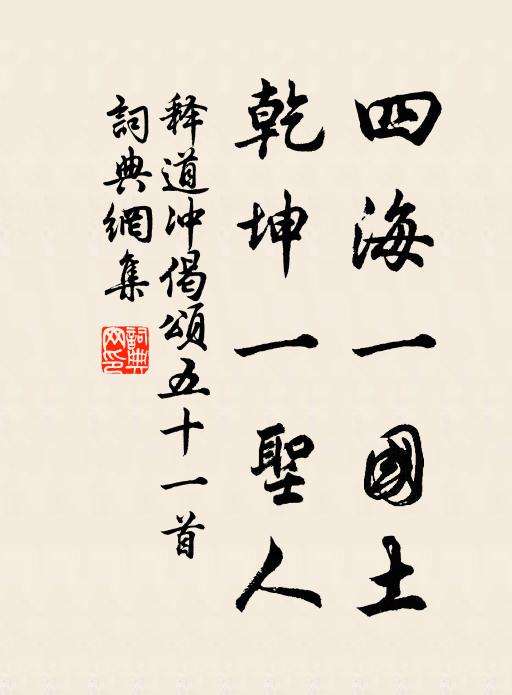 四海一國土
乾坤一聖人
释道冲偈頌五十一首
詞典網集
詞典網印